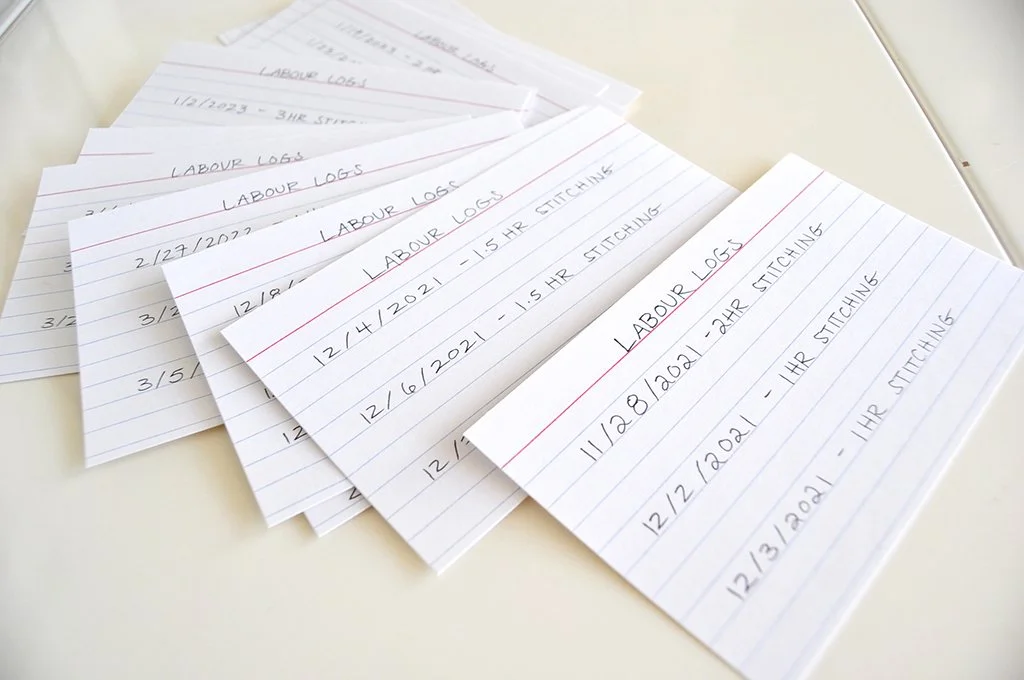 LABOUR LOGS
11/28/2021 - 2HR STITCHING
12/2/2021 - 1HR STITCHING
12/3/2021 - 1HR STITCHING
LABOUR LOGS
12/4/2021 - 1.5 HR STITCHING
12/6/2021 - 1.5 HR STITCHING
12/
LABOUR LOGS
12/8/
12
LABOUR LOGS
2/27/2022
3/2
3/5/
LABOUR LOGS
3/2
LABOUR LOGS
1/2/2023 - 3HR STITC
LABOUR LOGS
1/19/2023 - 2